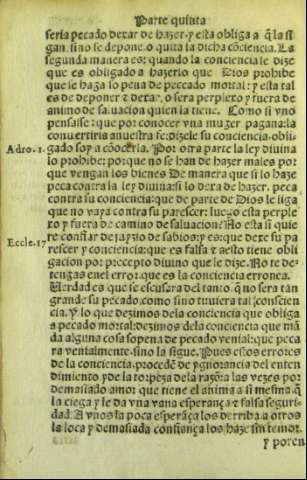 Parte quinta
seria pecado dexar de hazer. y esta obliga a q̃ la si
gan. sino se depone. o quita la dicha cõciencia. La
segunda manera es: quando la conciencia le dize
que es obligado a hazerlo que Dios prohibe
que se haga so pena de peccado mortal: y esta tal
es de deponer τ dexar. o sera perplexo y fuera de
animo de saluacion quien la tiene. Como si vno
pensasse: que por conocer vna muger pagana: la
conuertiria a nuestra fe: dizele su conciencia obli-
Adro. 3. gado soy a conocerla. Por otra parte la ley diuina
lo prohibe: porque no se han de hazer males por
que vengan los bienes De manera que si lo haze
peca contra la ley diuina: si lo dexa de hazer. peca
contra su conciencia: que de parte de Dios le liga
que no vaya contra su parescer: luego esta perple
xo y fuera de camino de saluacion? No esta si quie
re confiar de juyzio de sabios: y es: que dexe su pa
Eccle. 17 rescer y conciencia: que es falsa τ a esto tiene obli
gacion por precepto diuino que le dize. No te de
tengas en el error: que es la conciencia erronea.
Verdad es que se escusara del tanto. q̃ no sera tan
grande su pecado. como sino tuuiera tal conscien
cia. Y lo que dezimos dela conciencia que obliga
a pecado mortal: dezimos dela conciencia que mã
da alguna cosa sopena de pecado venial: que peca
ra venialmente. sino la sigue. Pues estos errores
de la conciencia. procedẽ de ygnorancia del enten
dimiento. y de la torpeza dela razõ: a las vezes por
demasiado amor que tiene el anima a si mesma q̃
la ciega y le da vna vana esperança τ falsa seguri-
dad. A vnos la poca esperãça los derriba. a otros
la loca y demasiada confiança los haze sin temor.
y poren